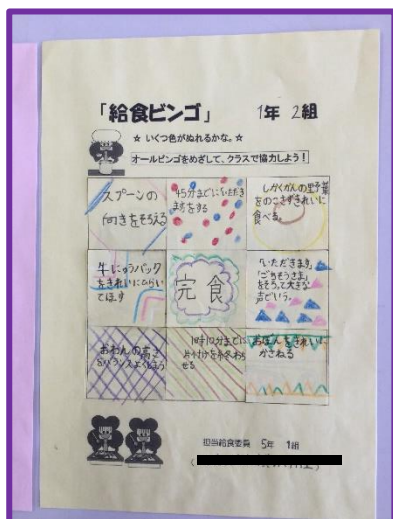 「給食ビンゴ」 1年 2組
☆ いくつ色がぬれるかな。☆
オールビンゴをめざして、クラスで協力しよう!
スプーンの
向きをそろえる
45分までにいただき
ますをする
しょくかんの野菜
をのこさずきれいに
食べる。
牛にゅうパック
をきれいにひらい
てほす
完食
「いただきます」
「ごちそうさま」
をそろって大きな
声でいう。
おわんの高さ
をバランスよくしよう
1時10分までに
片付けを終わら
せる
おぼんをきれいに
かさねる
担当給食委員 5年 1組